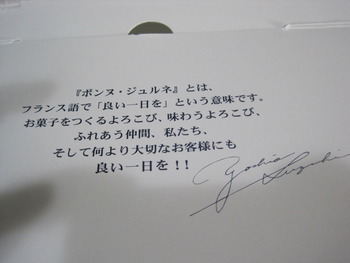 『ボンヌ・ジュルネ』とは、
フランス語で「良い一日を」という意味です。
お菓子をつくるよろこび、味わうよろこび、
ふれあう仲間、私たち、
そして何より大切なお客様にも
良い一日を!!
Yoshio Suzuki